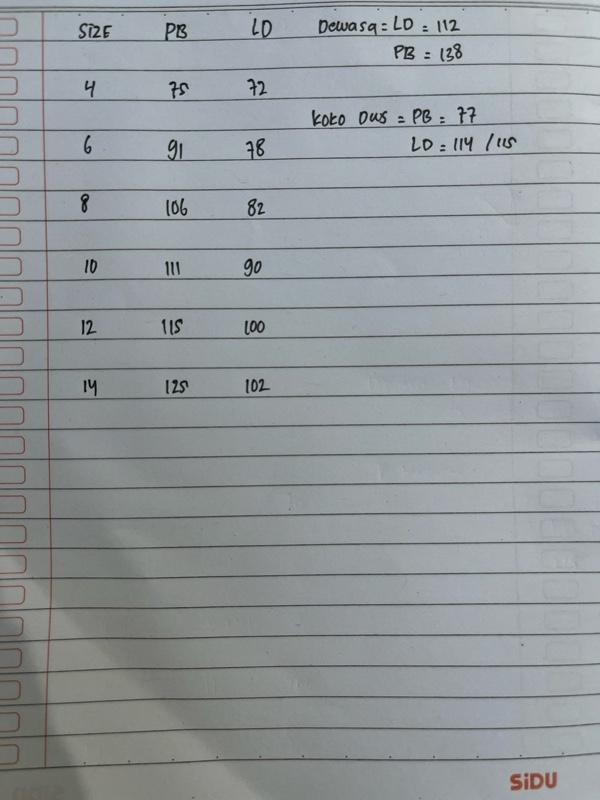 SIZE PB LD Dewasa = LD = 112
PB = 138
4 75 72
Koko Dws = PB = 77
6 91 78 LD = 114 / 115
8 106 82
10 111 90
12 115 100
14 125 102
SiDU